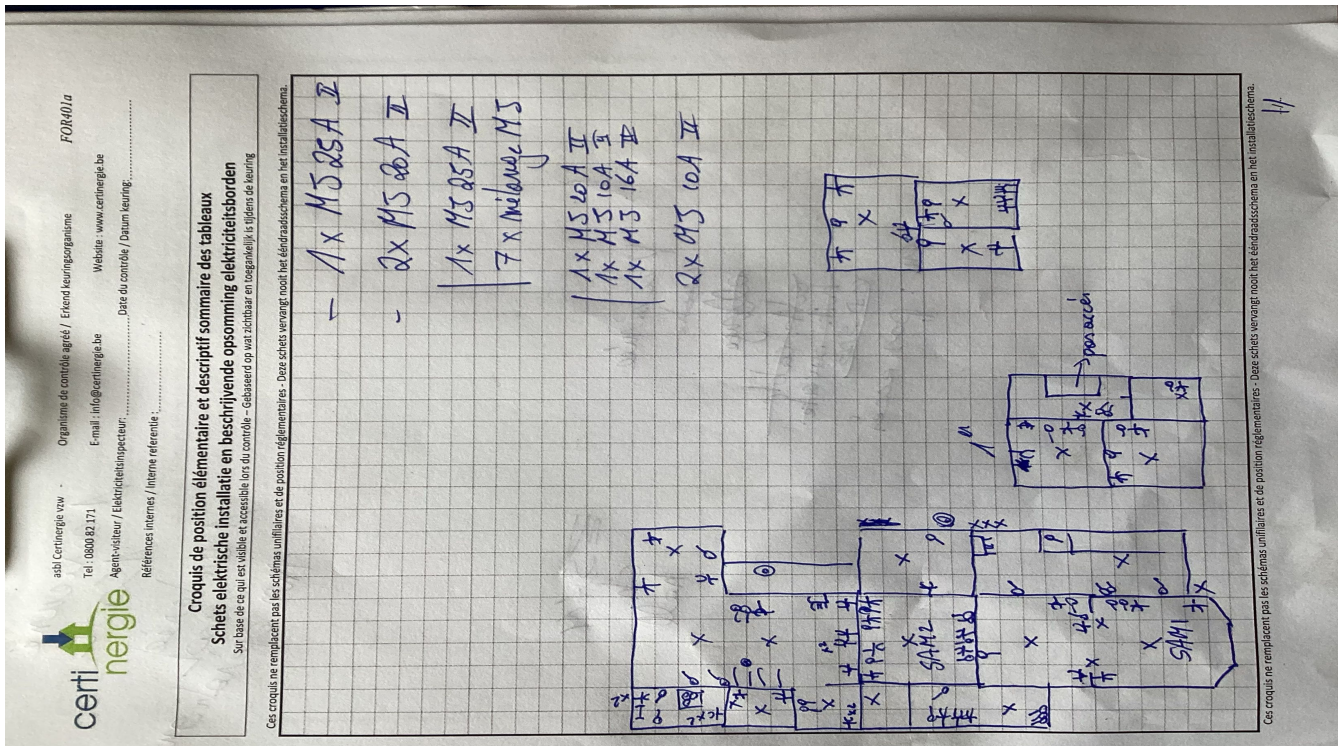 certinergie
asbl Certinergie vzw - Organisme de contrôle agréé / Erkend keuringsorganisme FOR401a
Tel : 0800 82 171 E-mail : info@certinergie.be Website : www.certinergie.be
Agent-visiteur / Elektriciteitsinspecteur: Date du contrôle / Datum keuring:
Références internes / Interne referentie :
Croquis de position élémentaire et descriptif sommaire des tableaux
Schets elektrische installatie en beschrijvende opsomming elektriciteitsborden
Sur base de ce qui est visible et accessible lors du contrôle – Gebaseerd op wat zichtbaar en toegankelijk is tijdens de keuring
Ces croquis ne remplacent pas les schémas unifilaires et de position réglementaires - Deze schets vervangt nooit het ééndraadsschema en het installatieschema.
- 1x MJ 25A II
- 2x MJ 20A II
1x MJ 25A II
7x Mélange MJ
1x MJ 20A II
1x MJ 10A II
1x MJ 16A IV
2x MJ 10A II
SAM2
SAM1
pas accès
Ces croquis ne remplacent pas les schémas unifilaires et de position réglementaires - Deze schets vervangt nooit het ééndraadsschema en het installatieschema.